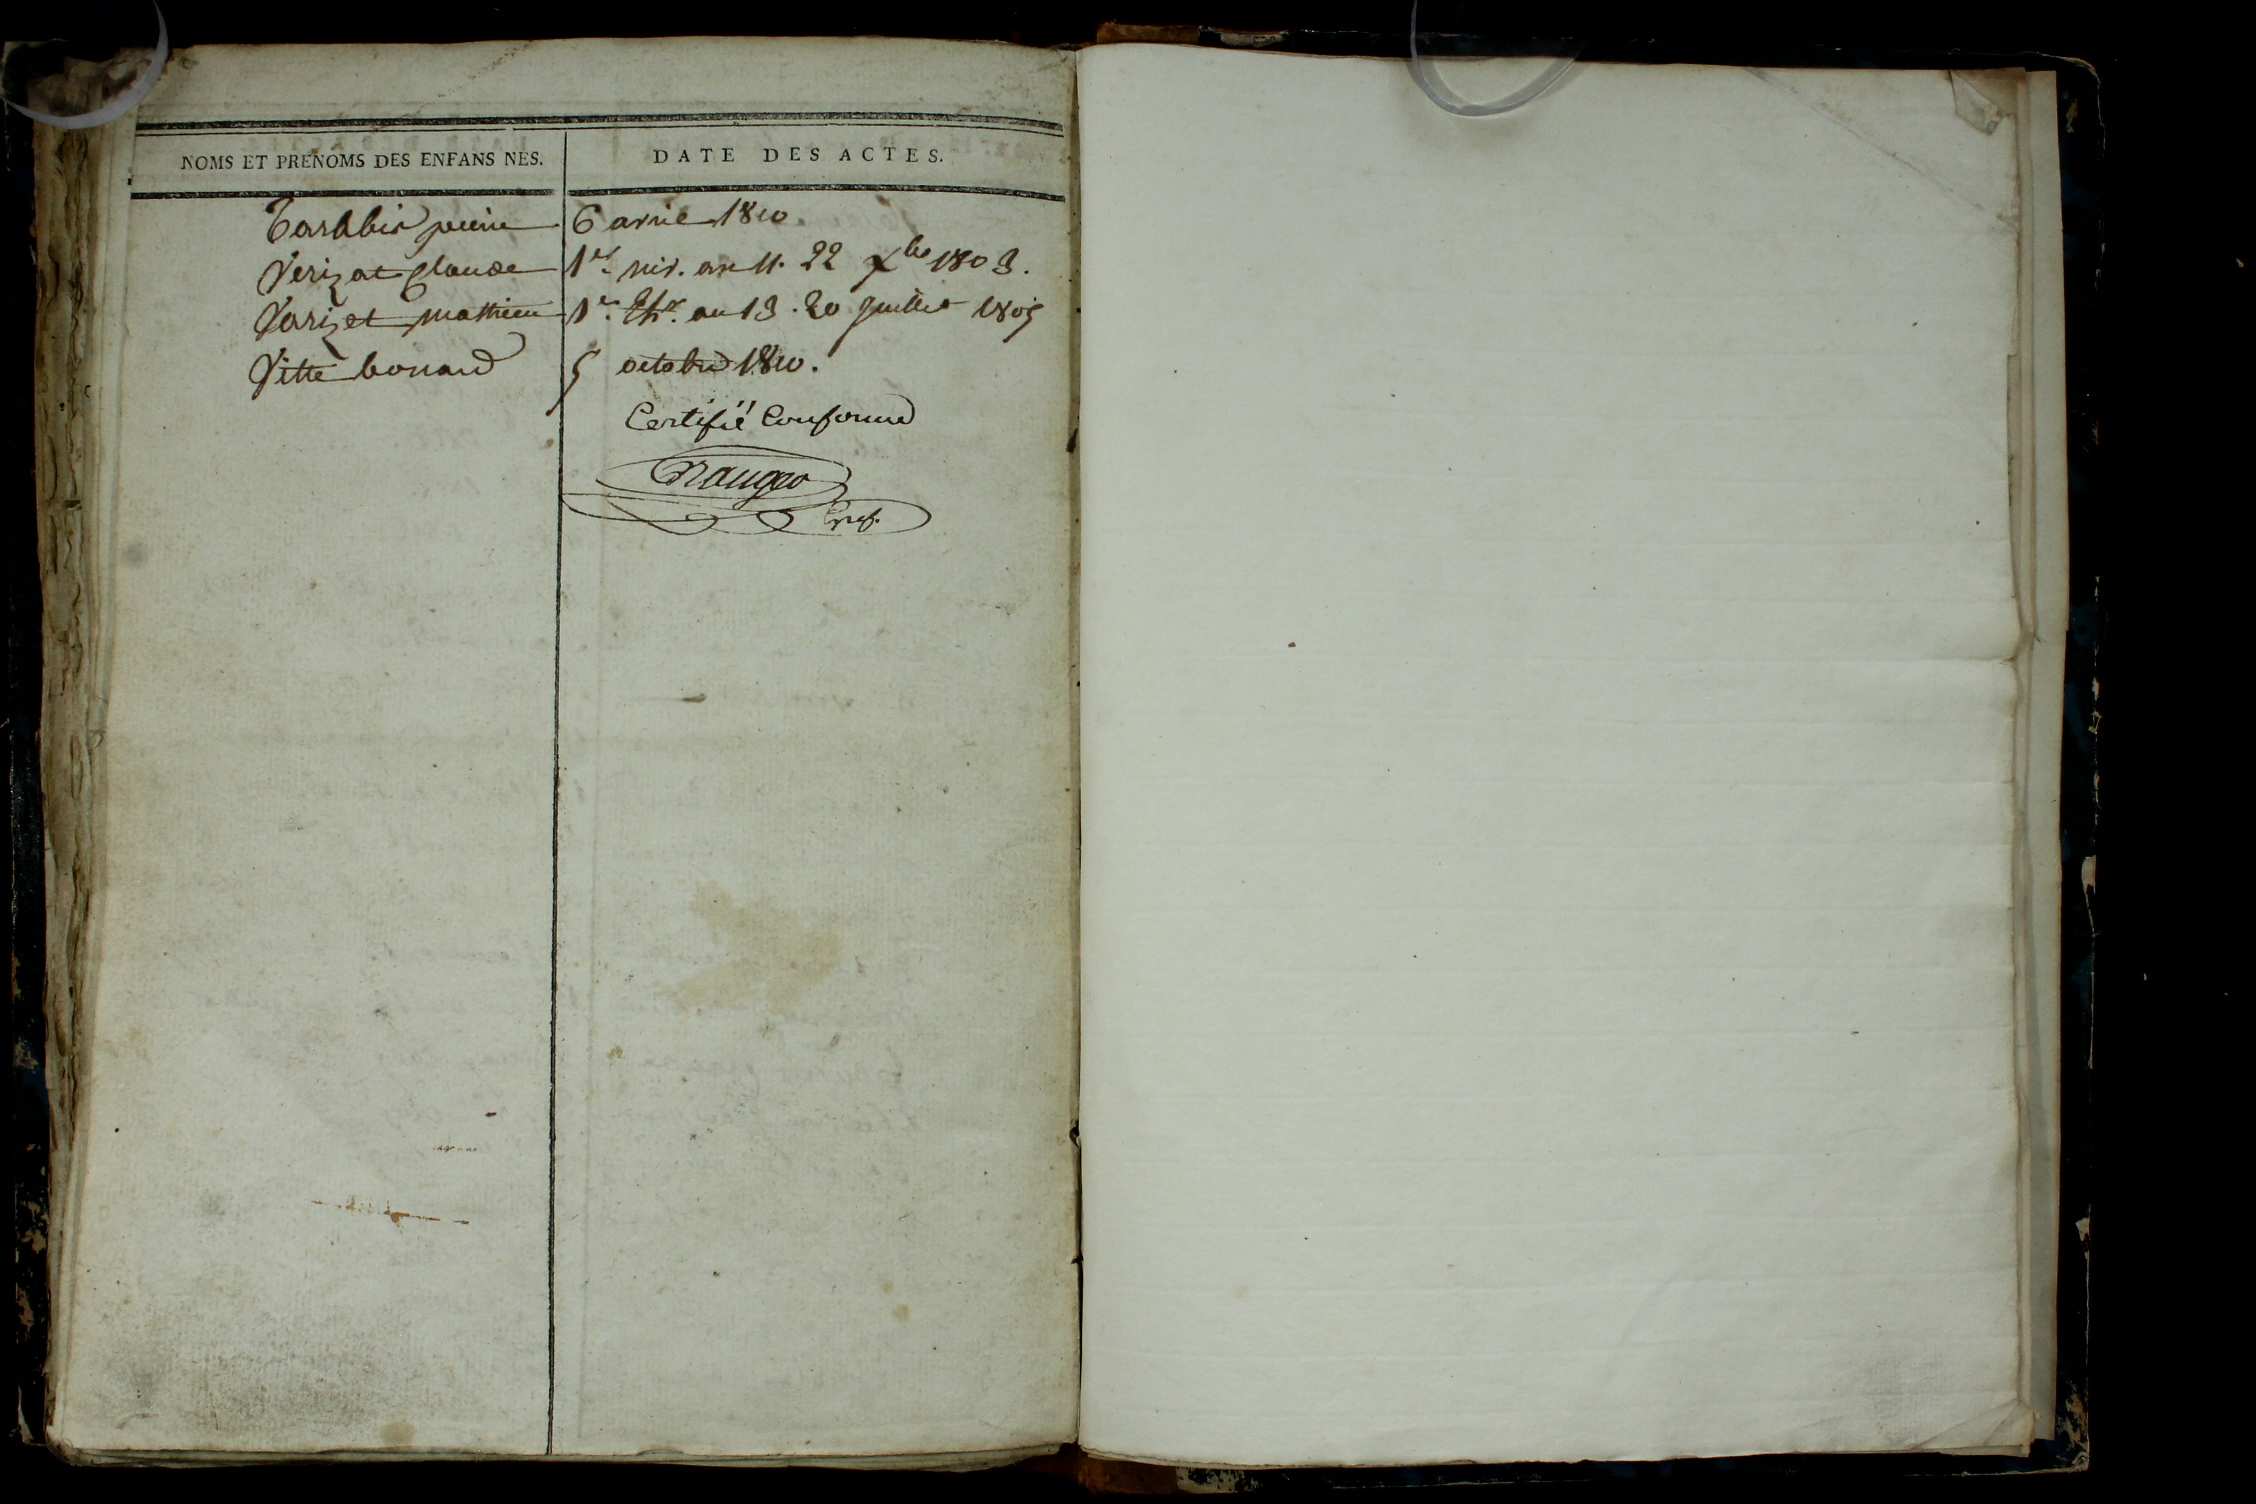 NOMS ET PRENOMS DES ENFANS NES.
DATE DES ACTES.
6 avril 1810
Verizat Claude 1er. niv. an 11. 22 Xbre 1803.
Verizet Mathieu 1er. Thr. an 13. 20 Juillet 1805
Vitte bonard 5 octobre 1810.
Certifié Conforme
Graf.